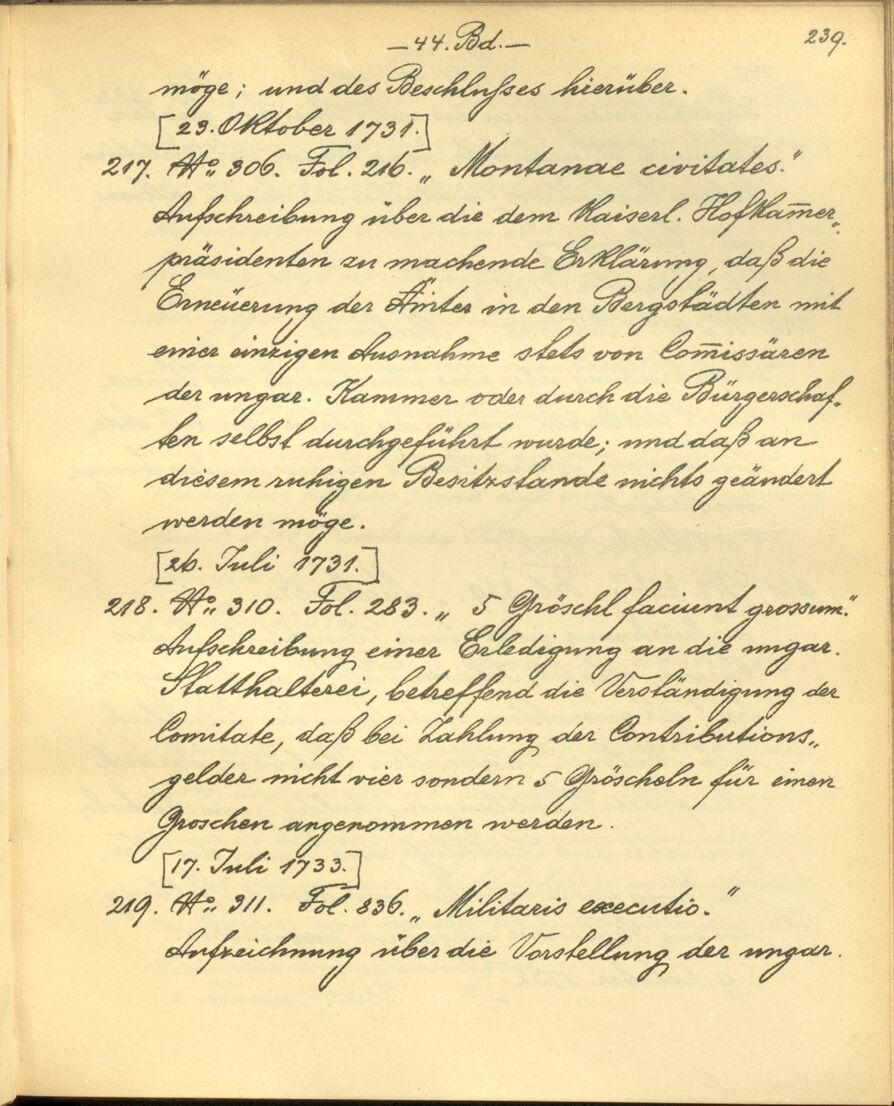 —44. Bd.—
239.
möge; und des Beschlußes hierüber.
[23. Oktober 1731.]
217. No. 306. Fol. 216. „Montanae civitates."
Aufschreibung über die dem Kaiserl. Hofkam̅er„
präsidenten zu machende Erklärung, daß die
Erneüerung der Ämter in den Bergstädten mit
einer einzigen Ausnahme stets von Com̅issären
der ungar. Kammer oder durch die Bürgerschaf„
ten selbst durchgeführt wurde; und daß an
diesem ruhigen Besitzstande nichts geändert
werden möge.
[26. Juli 1731.]
218. No. 310. Fol. 283. „5 Gröschl faciunt grossum."
Aufschreibung einer Erledigung an die ungar.
Statthalterei, betreffend die Verständigung der
Comitate, daß bei Zahlung der Contributions„
gelder nicht vier sondern 5 Gröscheln für einen
Groschen angenommen werden.
[17. Juli 1733.]
219. No. 311. Fol. 836. „Militaris executio."
Aufzeichnung über die Vorstellung der ungar.